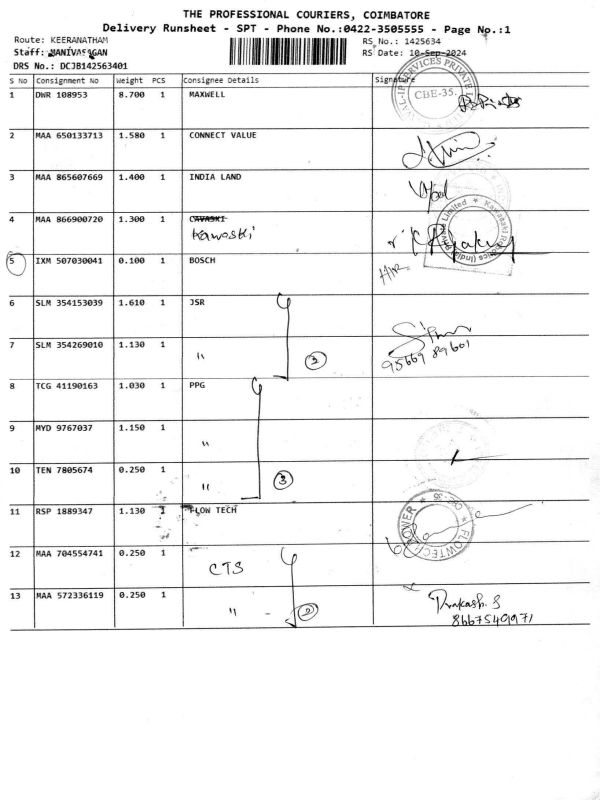 THE PROFESSIONAL COURIERS, COIMBATORE
Delivery Runsheet - SPT - Phone No.:0422-3505555 - Page No.:1
Route: KEERANATHAM RS No.: 1425634
Staff: MANIVASAGAN RS Date: 10-Sep-2024
DRS No.: DCJB142563401
S No Consignment No Weight PCS Consignee Details Signature
1 DWR 108953 8.700 1 MAXWELL
CBE-35.
2 MAA 650133713 1.580 1 CONNECT VALUE
3 MAA 865607669 1.400 1 INDIA LAND
4 MAA 866900720 1.300 1 CAVASKI
Kawaski
5 IXM 507030041 0.100 1 BOSCH
6 SLM 354153039 1.610 1 JSR
7 SLM 354269010 1.130 1 " 2
95669 89601
8 TCG 41190163 1.030 1 PPG
9 MYD 9767037 1.150 1 "
10 TEN 7805674 0.250 1 " 3
11 RSP 1889347 1.130 1 FLOW TECH
12 MAA 704554741 0.250 1 CTS
13 MAA 572336119 0.250 1 " 2 Prakash. S
8667549971